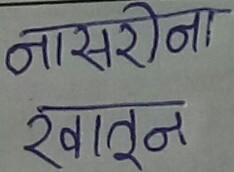 नासरीना
खातून